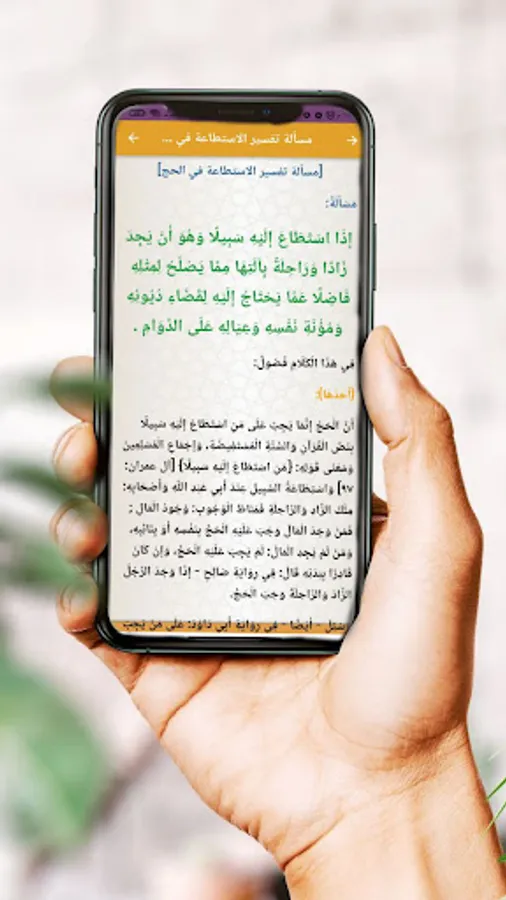 مسألة تفسير الاستطاعة في ...
[مسألة تفسير الاستطاعة في الحج]
مَسْأَلَةٌ:
إِذَا اسْتَطَاعَ إِلَيْهِ سَبِيلًا وَهُوَ أَنْ يَجِدَ
زَادًا وَرَاحِلَةً بِآلَتِهَا مِمَّا يَصْلُحُ لِمِثْلِهِ
فَاضِلًا عَمَّا يَحْتَاجُ إِلَيْهِ لِقَضَاءِ دُيُونِهِ
وَمُؤْنَةِ نَفْسِهِ وَعِيَالِهِ عَلَى الدَّوَامِ .
فِي هَذَا الْكَلَامِ فُصُولٌ:
(أحدها):
أَنَّ الْحَجَّ إِنَّمَا يَجِبُ عَلَى مَنِ اسْتَطَاعَ إِلَيْهِ سَبِيلًا
بِنَصِّ الْقُرْآنِ وَالسُّنَّةِ الْمُسْتَفِيضَةِ، وَإِجْمَاعِ الْمُسْلِمِينَ
وَمَعْنَى قَوْلِهِ: {مَنِ اسْتَطَاعَ إِلَيْهِ سَبِيلًا} [آل عمران:
٩٧] وَاسْتِطَاعَةُ السَّبِيلِ عِنْدَ أَبِي عَبْدِ اللَّهِ وَأَصْحَابِهِ:
مِلْكُ الزَّادِ وَالرَّاحِلَةِ فَمَنَاطُ الْوُجُوبِ: وُجُودُ الْمَالِ ;
فَمَنْ وَجَدَ الْمَالَ وَجَبَ عَلَيْهِ الْحَجُّ بِنَفْسِهِ أَوْ بِنَائِبِهِ،
وَمَنْ لَمْ يَجِدِ الْمَالَ: لَمْ يَجِبْ عَلَيْهِ الْحَجُّ، وَإِنْ كَانَ
قَادِرًا بِبَدَنِهِ قَالَ: فِي رِوَايَةِ صَالِحٍ - إِذَا وَجَدَ الرَّجُلُ
الزَّادَ وَالرَّاحِلَةَ وَجَبَ الْحَجُّ.
وَسُئِلَ - أَيْضًا - فِي رِوَايَةِ أَبِي دَاوُدَ: عَلَى مَنْ يَجِبُ